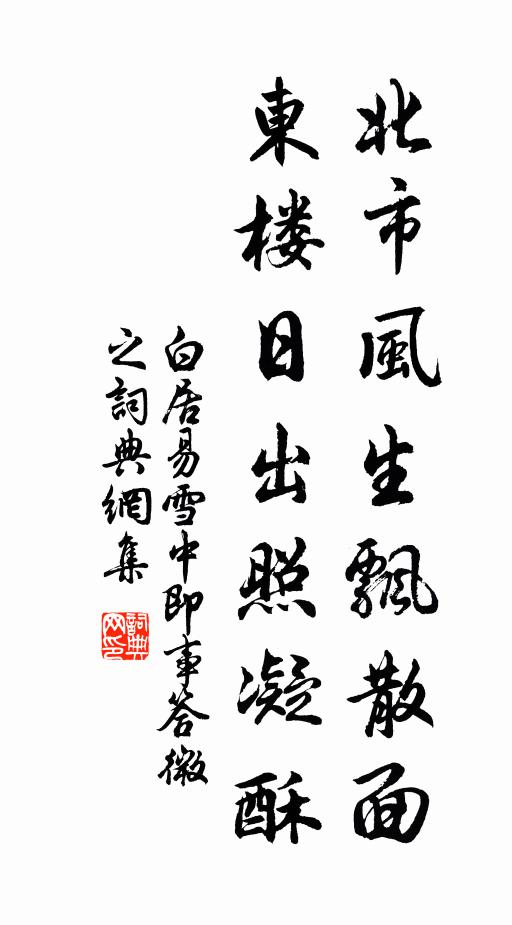 北市風生飄散面
東楼日出照凝酥
白居易雪中即事答微
之詞典網集
詞典
网印